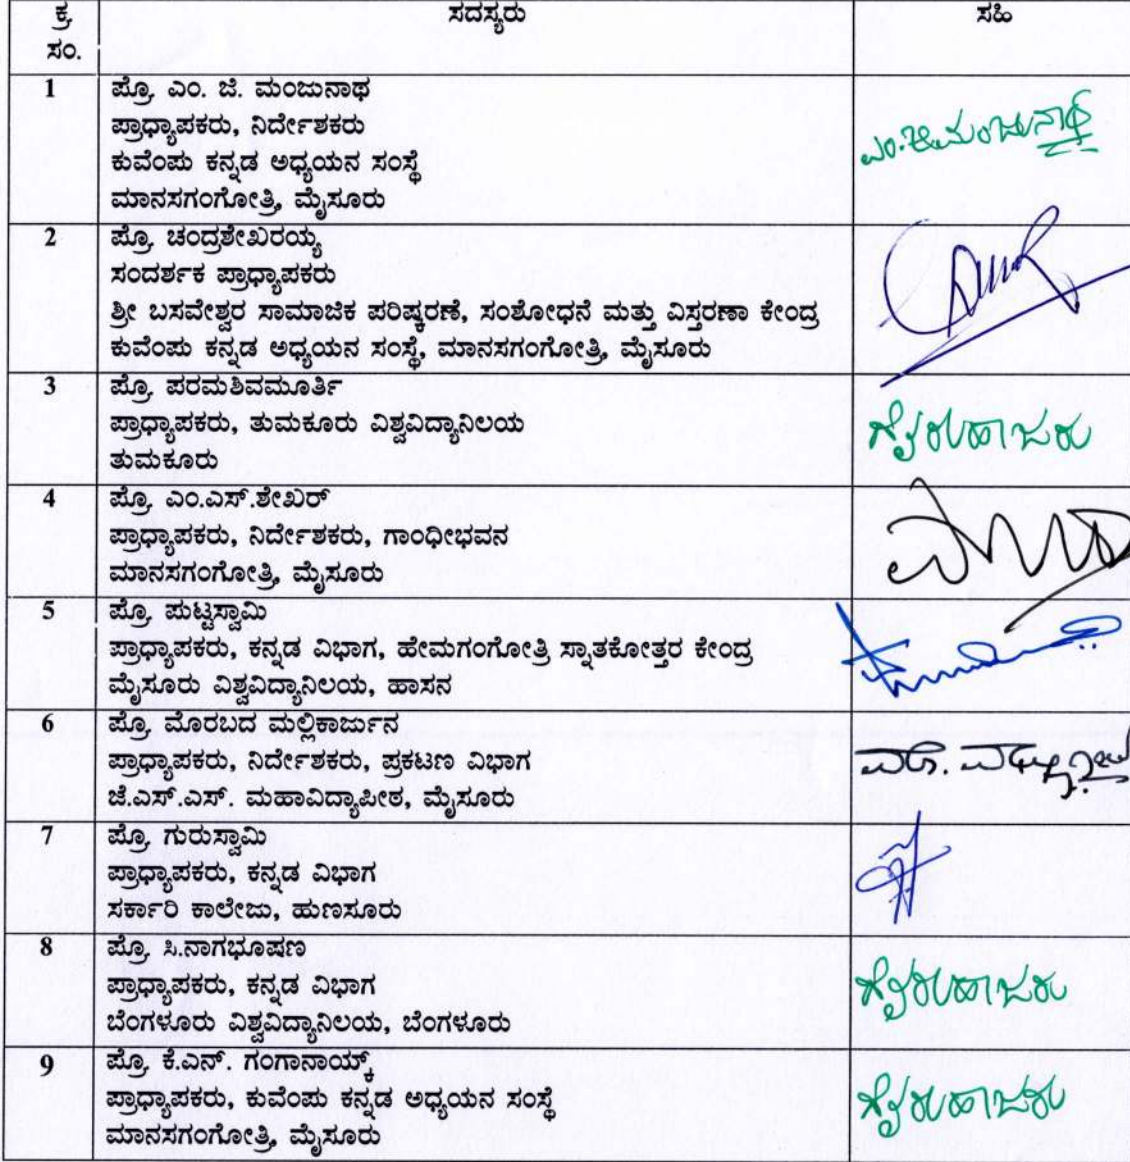 ಕ್ರ ಸದಸ್ಯರು ಸಹಿ
ಸಂ.
1 ಪ್ರೊ. ಎಂ. ಜಿ. ಮಂಜುನಾಥ
ಪ್ರಾಧ್ಯಾಪಕರು, ನಿರ್ದೇಶಕರು
ಕುವೆಂಪು ಕನ್ನಡ ಅಧ್ಯಯನ ಸಂಸ್ಥೆ
ಮಾನಸಗಂಗೋತ್ರಿ, ಮೈಸೂರು
ಎಂ.ಜಿ.ಮಂಜುನಾಥ್
2 ಪ್ರೊ. ಚಂದ್ರಶೇಖರಯ್ಯ
ಸಂದರ್ಶಕ ಪ್ರಾಧ್ಯಾಪಕರು
ಶ್ರೀ ಬಸವೇಶ್ವರ ಸಾಮಾಜಿಕ ಪರಿಷ್ಕರಣೆ, ಸಂಶೋಧನೆ ಮತ್ತು ವಿಸ್ತರಣಾ ಕೇಂದ್ರ
ಕುವೆಂಪು ಕನ್ನಡ ಅಧ್ಯಯನ ಸಂಸ್ಥೆ, ಮಾನಸಗಂಗೋತ್ರಿ, ಮೈಸೂರು
3 ಪ್ರೊ. ಪರಮಶಿವಮೂರ್ತಿ
ಪ್ರಾಧ್ಯಾಪಕರು, ತುಮಕೂರು ವಿಶ್ವವಿದ್ಯಾನಿಲಯ
ತುಮಕೂರು
ಗೈರುಹಾಜರು
4 ಪ್ರೊ. ಎಂ.ಎಸ್.ಶೇಖರ್
ಪ್ರಾಧ್ಯಾಪಕರು, ನಿರ್ದೇಶಕರು, ಗಾಂಧೀಭವನ
ಮಾನಸಗಂಗೋತ್ರಿ, ಮೈಸೂರು
5 ಪ್ರೊ. ಪುಟ್ಟಸ್ವಾಮಿ
ಪ್ರಾಧ್ಯಾಪಕರು, ಕನ್ನಡ ವಿಭಾಗ, ಹೇಮಗಂಗೋತ್ರಿ ಸ್ನಾತಕೋತ್ತರ ಕೇಂದ್ರ
ಮೈಸೂರು ವಿಶ್ವವಿದ್ಯಾನಿಲಯ, ಹಾಸನ
6 ಪ್ರೊ. ಮೊರಬದ ಮಲ್ಲಿಕಾರ್ಜುನ
ಪ್ರಾಧ್ಯಾಪಕರು, ನಿರ್ದೇಶಕರು, ಪ್ರಕಟಣ ವಿಭಾಗ
ಜೆ.ಎಸ್.ಎಸ್. ಮಹಾವಿದ್ಯಾಪೀಠ, ಮೈಸೂರು
7 ಪ್ರೊ. ಗುರುಸ್ವಾಮಿ
ಪ್ರಾಧ್ಯಾಪಕರು, ಕನ್ನಡ ವಿಭಾಗ
ಸರ್ಕಾರಿ ಕಾಲೇಜು, ಹುಣಸೂರು
8 ಪ್ರೊ. ಸಿ.ನಾಗಭೂಷಣ
ಪ್ರಾಧ್ಯಾಪಕರು, ಕನ್ನಡ ವಿಭಾಗ
ಬೆಂಗಳೂರು ವಿಶ್ವವಿದ್ಯಾನಿಲಯ, ಬೆಂಗಳೂರು
ಗೈರುಹಾಜರು
9 ಪ್ರೊ. ಕೆ.ಎನ್. ಗಂಗಾನಾಯ್ಕ್
ಪ್ರಾಧ್ಯಾಪಕರು, ಕುವೆಂಪು ಕನ್ನಡ ಅಧ್ಯಯನ ಸಂಸ್ಥೆ
ಮಾನಸಗಂಗೋತ್ರಿ, ಮೈಸೂರು
ಗೈರುಹಾಜರು